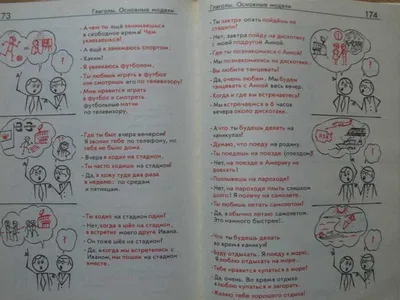 73
Глаголы. Основные модели
- А чем ты ещё занимаешься
в свободное время? Чем
увлекаешься?
- А ещё я занимаюсь спортом.
- Каким?
- Я увлекаюсь футболом.
- Ты любишь играть в футбол
или смотришь его по телевизору?
- Мне нравится играть
в футбол и смотреть
футбольные матчи
по телевизору.
- Где ты был вчера вечером?
Я звонил тебе по телефону, но
тебя не было дома.
- Вчера я ходил на стадион.
- Ты часто ходишь на стадион?
- Да, я хожу туда два раза
в неделю: по средам
и пятницам.
- Ты ходил на стадион один?
- Нет, когда я шёл на стадион,
я встретил моего друга Ивана.
- Он тоже шёл на стадион?
- Да, когда мы встретились с
Иваном, мы пошли на стадион
вместе.
Глаголы. Основные модели
174
- Ты завтра опять пойдёшь на
стадион?
- Нет, завтра пойду на дискотеку
с моей подругой Анной.
- Где ты познакомился с Анной?
- Мы познакомились на дискотеке.
- Вы любите танцевать?
- Да, очень любим. Мы будем
танцевать с Анной весь вечер.
- Когда и где вы встречаетесь?
- Мы встречаемся в 6 часов
вечера около дискотеки.
- А что ты будешь делать на
каникулах?
- Думаю, что поеду на родину.
- Ты поедешь на поезде (поездом)?
- Нет, на поезде в Америку не
доехать.
- Поплывёшь на пароходе?
- Нет, на пароходе плыть слишком
долго! Я полечу на самолёте.
- Ты любишь летать самолётом?
- Да, я обычно летаю самолётом.
Это намного быстрее!
- Что ты будешь делать
во время каникул?
- Буду отдыхать. Я поеду к морю.
Я люблю отдыхать на море.
- Тебе нравится купаться в море?
- Да, очень. Во время отдыха
я люблю купаться и загорать.
- Желаю тебе хорошего отдыха!